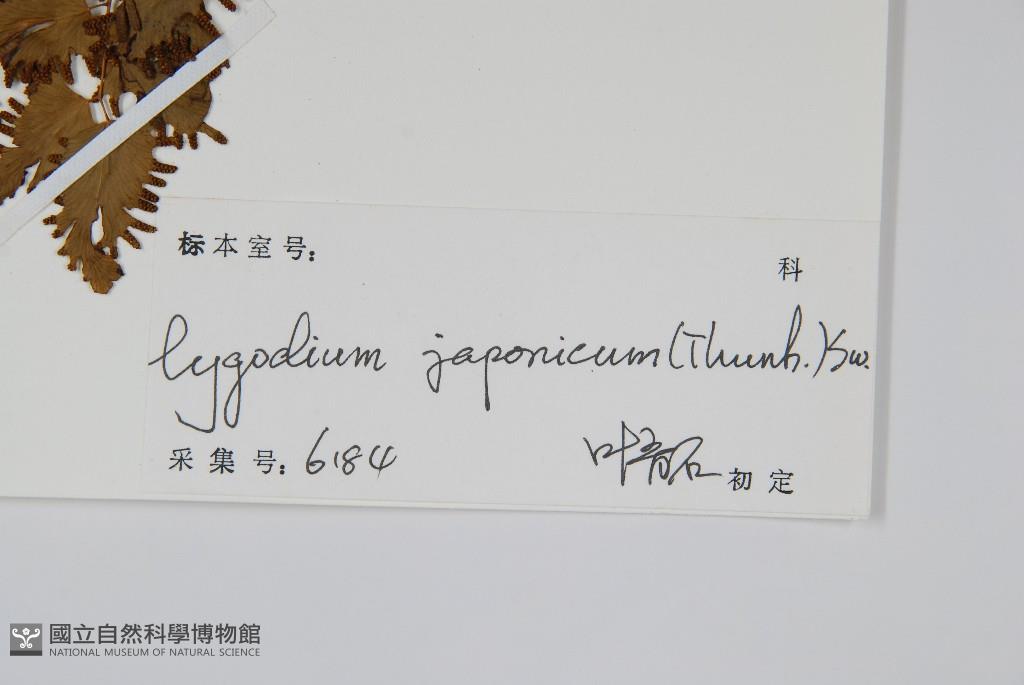 标本室号:
科
Lygodium japonicum (Thunb.) Sw.
采集号: 6184
叶 初定
國立自然科學博物館
NATIONAL MUSEUM OF NATURAL SCIENCE